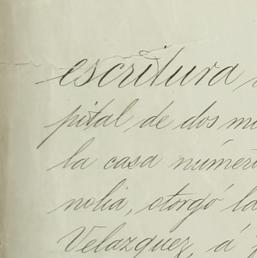 escritura
pital de dos m
la casa númer
nolia, otorgó la
Velazquez, á